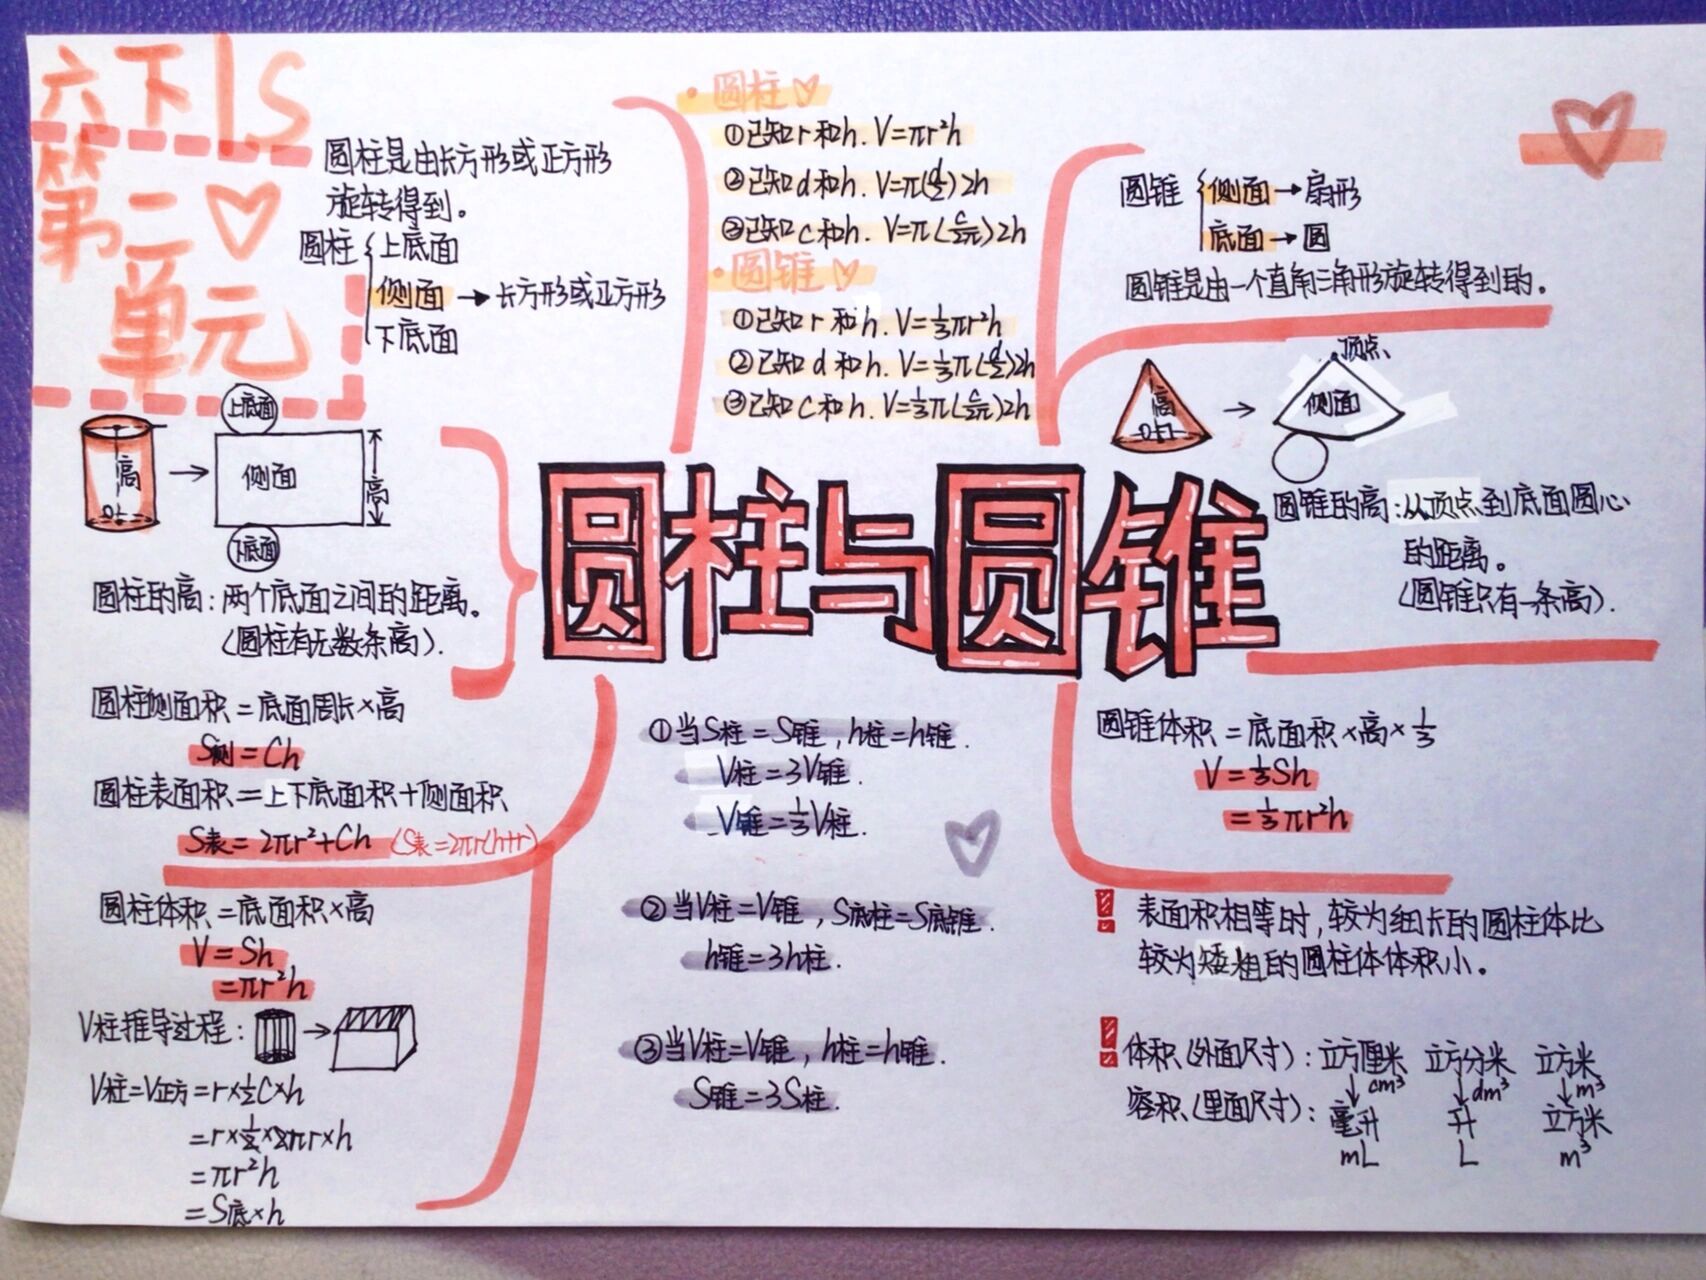 六下
第二
单元
圆柱是由长方形或正方形
旋转得到。
圆柱
上底面
侧面→长方形或正方形
下底面
上底面
高→侧面 高
下底面
圆柱的高:两个底面之间的距离。
(圆柱有无数条高).
圆柱侧面积=底面周长×高
S侧=Ch
圆柱表面积=上下底面积+侧面积
S表=2πr²+Ch (S表=2πr(h+r)
圆柱体积=底面积×高
V=Sh
=πr²h
V柱推导过程:
V柱=V正方=r×½C×h
=r×½×2πr×h
=πr²h
=S底×h
·圆柱♡
①已知r和h. V=πr²h
②已知d和h. V=π(d/2)2h
③已知C和h. V=π(C/2π)2h
·圆锥♡
①已知r和h. V=⅓πr²h
②已知d和h. V=⅓π(d/2)2h
③已知C和h. V=⅓π(C/2π)2h
圆柱与圆锥
①当S柱=S锥,h柱=h锥.
V柱=3V锥.
V锥=⅓V柱.
②当V柱=V锥,S底柱=S底锥.
h锥=3h柱.
③当V柱=V锥,h柱=h锥.
S锥=3S柱.
圆锥
侧面→扇形
底面→圆
圆锥是由一个直角三角形旋转得到的。
顶点
高→侧面
圆锥的高:从顶点到底面圆心
的距离。
(圆锥只有一条高).
圆锥体积=底面积×高×⅓
V=⅓Sh
=⅓πr²h
表面积相等时,较为细长的圆柱体比
较为矮粗的圆柱体体积小。
体积(外面尺寸):立方厘米 立方分米 立方米
cm³ dm³ m³
容积(里面尺寸):毫升 升 立方米
mL L m³